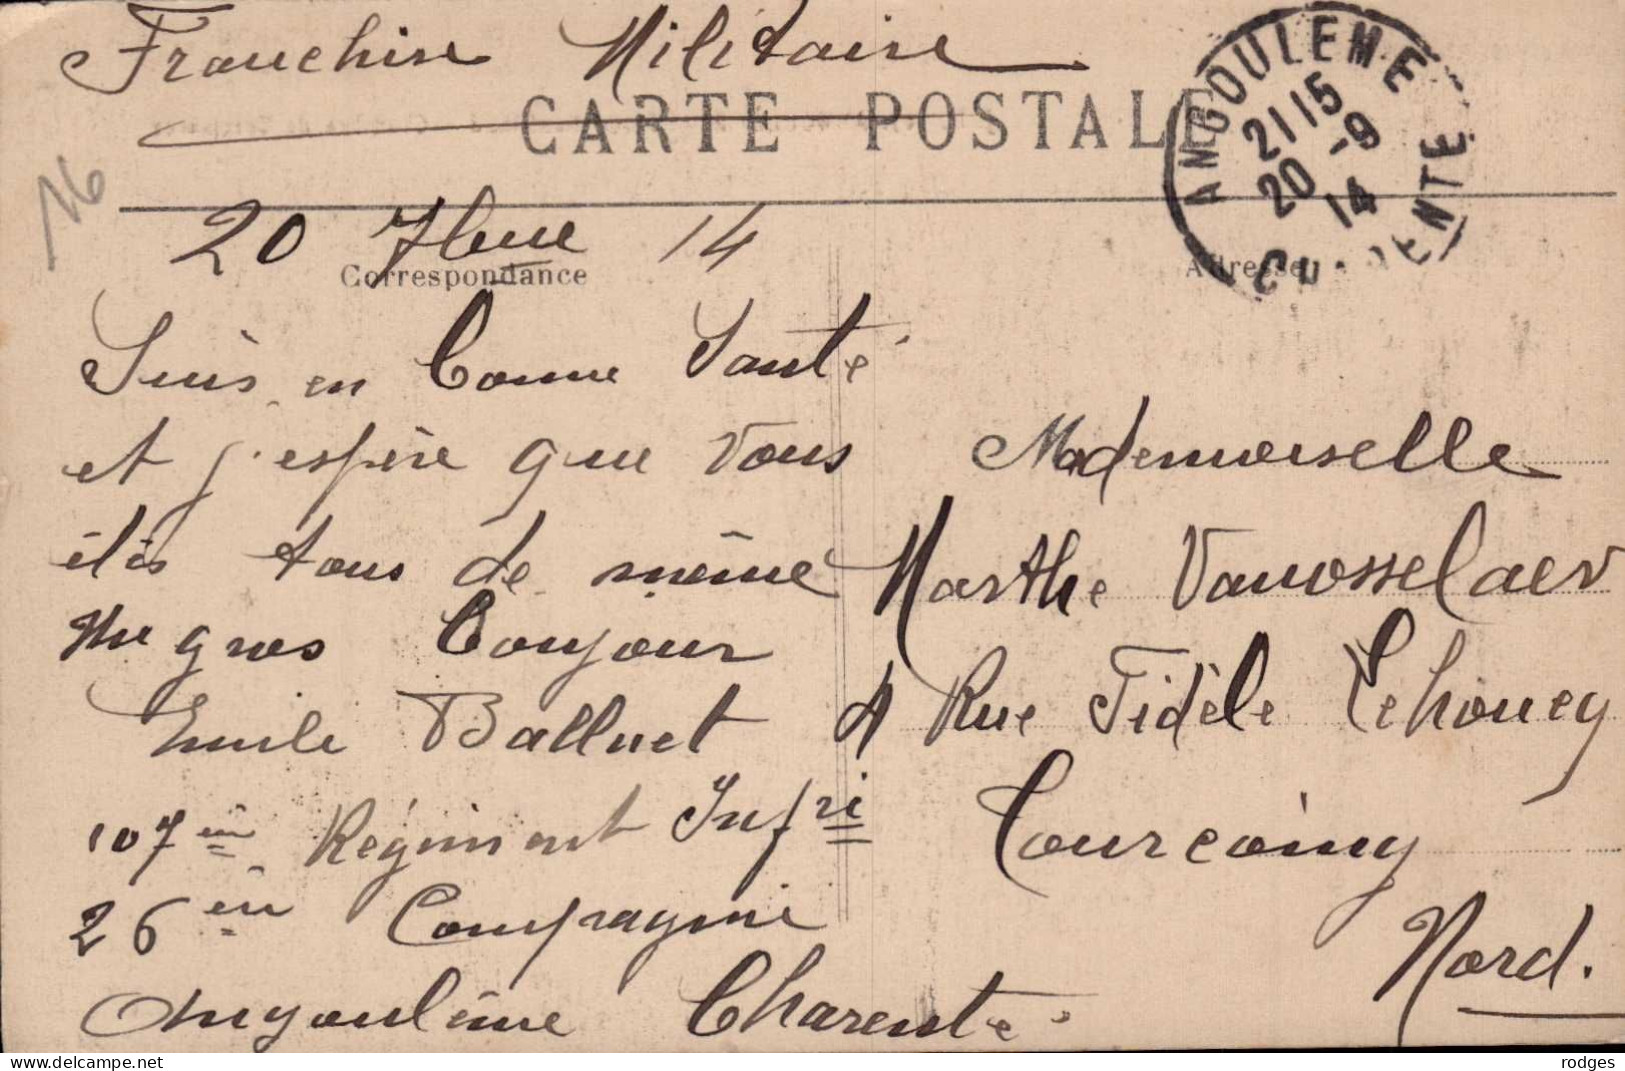 Franchise Militaire
CARTE POSTALE
ANGOULEME
21 15
20 -9
14
CHARENTE
16
20 7bre 14
Correspondance
Adresse
Suis en bonne Santé
et j'espère que vous
étés tous de même
un gros bonjour
Emile Balluet
107 èm Régiment Infri
26 èm Compagnie
Angoulême Charente
Mademoiselle
Marthe Vanosselaer
Rue Fidèle Lehoucq
Tourcoing
Nord.
rodges